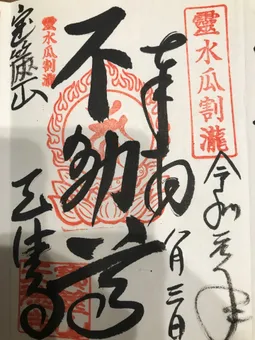 靈水瓜割瀧
奉拝
令和元年
八月三日
不動尊
靈水瓜割瀧
宝篋山
天徳寺